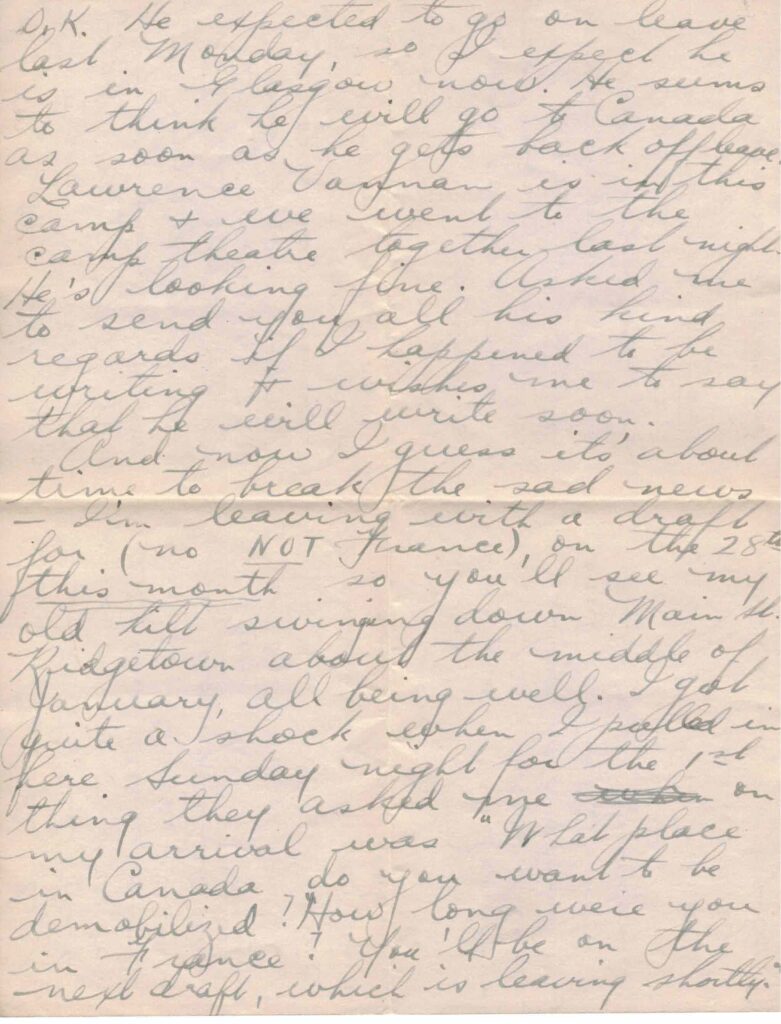 O.K. He expected to go on leave
last Monday, so I expect he
is in Glasgow now. He seems
to think he will go to Canada
as soon as he gets back off leave.
Lawrence Vannan is in this
camp & we went to the
camp theatre together last night.
He's looking fine. Asked me
to send you all his kind
regards if I happened to be
writing & wishes me to say
that he will write soon.
And now I guess it's about
time to break the sad news
– I'm leaving with a draft
for (no NOT France), on the 28th
this month so you'll see my
old kilt swinging down Main St.
Ridgetown about the middle of
January, all being well. I got
quite a shock when I pulled in
here Sunday night for the 1st
thing they asked me when on
my arrival was "What place
in Canada do you want to be
demobilized? "How long were you
in France? You'll be on the
next draft, which is leaving shortly."